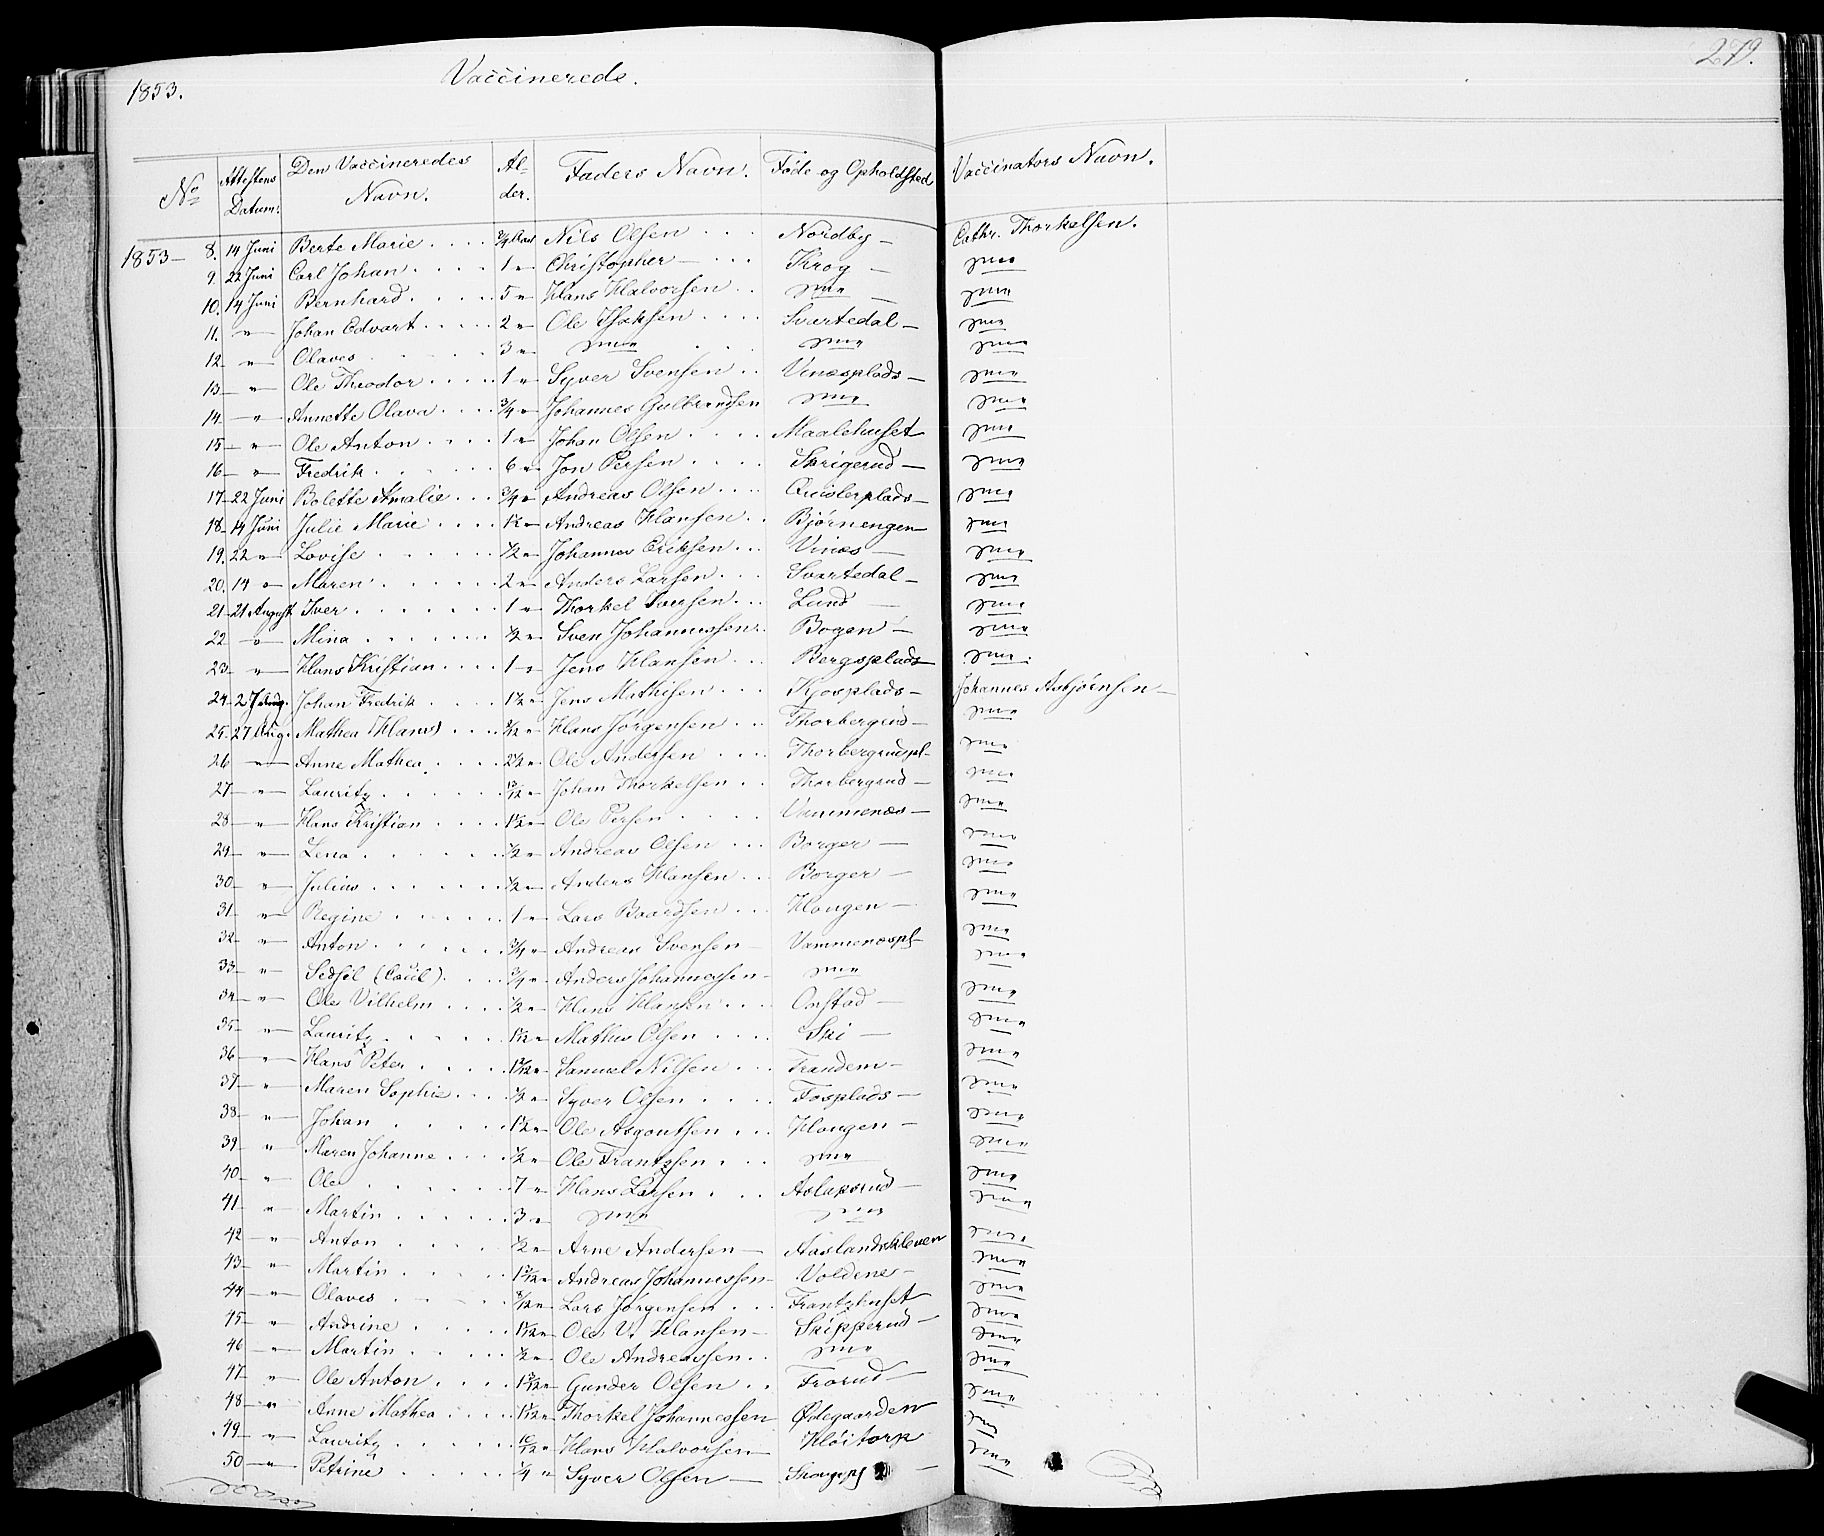 1853. Vaccinerede. 279.
No Attestens Datum. Den Vaccineredes Navn. Alder. Faders Navn. Føde og Opholdsted Vaccinators Navn.
1853 — 8. 14 Juni Berte Marie 3/4 Aar Nils Olsen Nordby — Cathr. Thorkelsen.
9. 22 Juni Carl Johan 1 " Christopher — Krog — sme
10. 14 Juni Bernhard 5 " Hans Halvorsen sme — sme
11. " Johan Edvart 2 " Ole Isaksen Svartedal — sme
12 — " — Olaves 3 " sme sme sme
13 — " — Ole Theodor 1 " Syver Svensen Vinæsplads — sme
14 — " Annette Olava 3/4 " Johannes Gulbrandsen sme sme
15 — " Ole Anton 1 " Johan Olsen Maalehuset sme
16 — " Fredrik 6 " Jon Persen Skrigerud — sme
17 — 22 Juni Bolette Amalie 3/4 " Andreas Olsen Qvislerplads — sme
18 — 14 Juni Julie Marie 1 1/2 " Andreas Hansen Bjørnengen — sme
19. 22 " — Lovise 1/2 " Johannes Eriksen Vinæs — sme
20. 14 " — Maren 2 " Anders Larsen Svartedal — sme
21 — 21 August Iver 1 " Thorkel Iversen Lund — sme
22 — " — Mina 1/2 " Sven Johannessen Bogen — sme
23 — " — Hans Kristian 1 — " Jens Hansen Bergsplads sme
24 — 27 Aug. Johan Fredrik 1 1/2 " Jens Mathisen Kjosplads — Johannes Asbjørnsen —
25. 27 Aug. Mathea (Hans) Hans Jørgensen Thorbergrud — sme
26 — " — Anne Mathea 2 1/2 " Ole Andersen Thorbergrudspl — sme
27 — " — Lauritz Johan Thorkelsen Thorbergrud — sme
28 — " — Hans Kristian 1 1/2 " Ole Persen Vammenæs — sme
29 — " — Lena 1/2 " Andreas Olsen Borger — sme
30 — " — Julius 1/2 " Anders Hansen Borger — sme
31 — " — Regine 1 " Lars Baardsen Hougen — sme
32 — " — Anton 3/4 " Andreas Svensen — Vammenæspl — sme
33 — " — Sedsel (Cecil) 3/4 " Anders Johannessen — sme sme
34 — " — Ole Vilhelm 1/2 " Hans Hansen Onstad — sme
35 — " — Lauritz Mathis Olsen Ski — sme
36 — " — Hans Peter Samuel Nilsen Frandem — sme
37 — " — Maren Sophie 1/2 " Syver Olsen Fosplads — sme
38 — " — Johan 1 1/2 " Ole Asgoutsen Hougen — sme
39 " — Maren Johanne 1/2 " Ole Frantzsen sme sme
40 — " — Ole 7 " Hans Larsen Aslaksrud — sme
41 — " — Martin 3 " sme sme sme
42 — " — Anton 1/2 " Arne Andersen — Aaslandskleven sme
43 — " — Martin Andreas Johannessen — Voldene — sme
44 — " — Olaves Lars Jørgensen Frantzhuset sme
45 — " — Andrine Ole V. Hansen — Skipperud — sme
46 — " — Martin 1/2 " Ole Andreassen sme sme
47 — " — Ole Anton Gunder Olsen Frorud — sme
48 — " — Anne Mathea Thorkel Johannessen Ødegaarden sme
49 — " — Lauritz 10/12 " Hans Halvorsen — Kløitorp sme
50 — " — Petrine 1/4 " Syver Olsen — sme